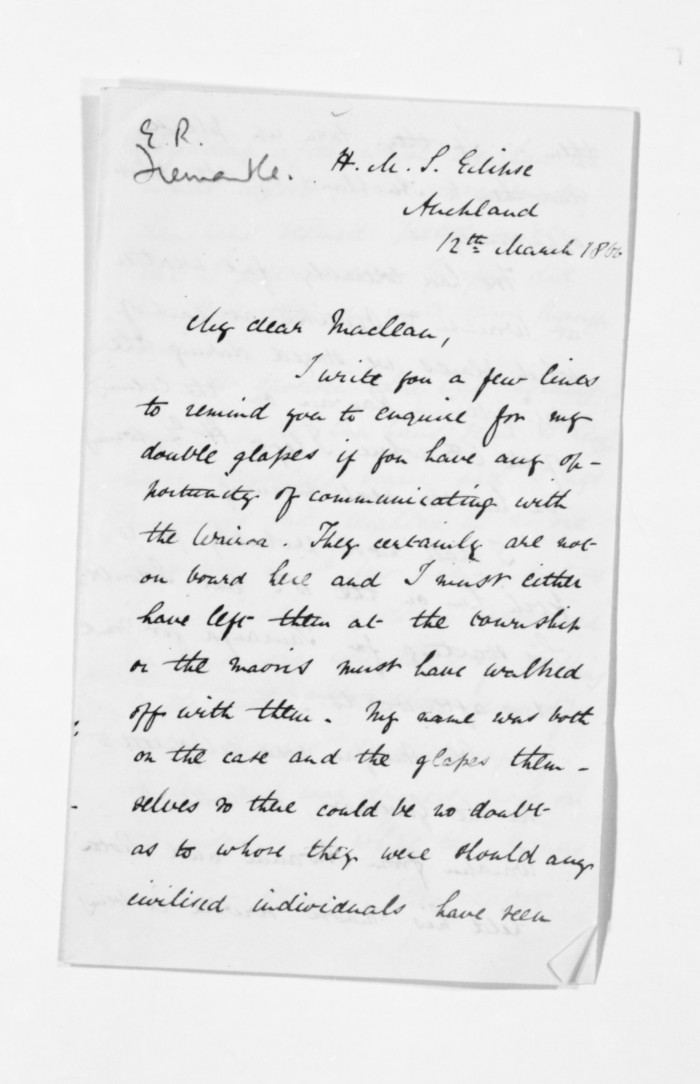 E. R.
Fremantle.
H. M. S. Eclipse
Auckland
12th March 1866
My dear Maclean,
I write you a few lines
to remind you to enquire for my
double glasses if you have any op-
portunity of communicating with
the Wairoa. They certainly are not
on board here and I must either
have left them at the township
or the maoris must have walked
off with them. My name was both
on the case and the glasses them-
selves so there could be no doubt
as to whose they were should any
civilised individuals have seen